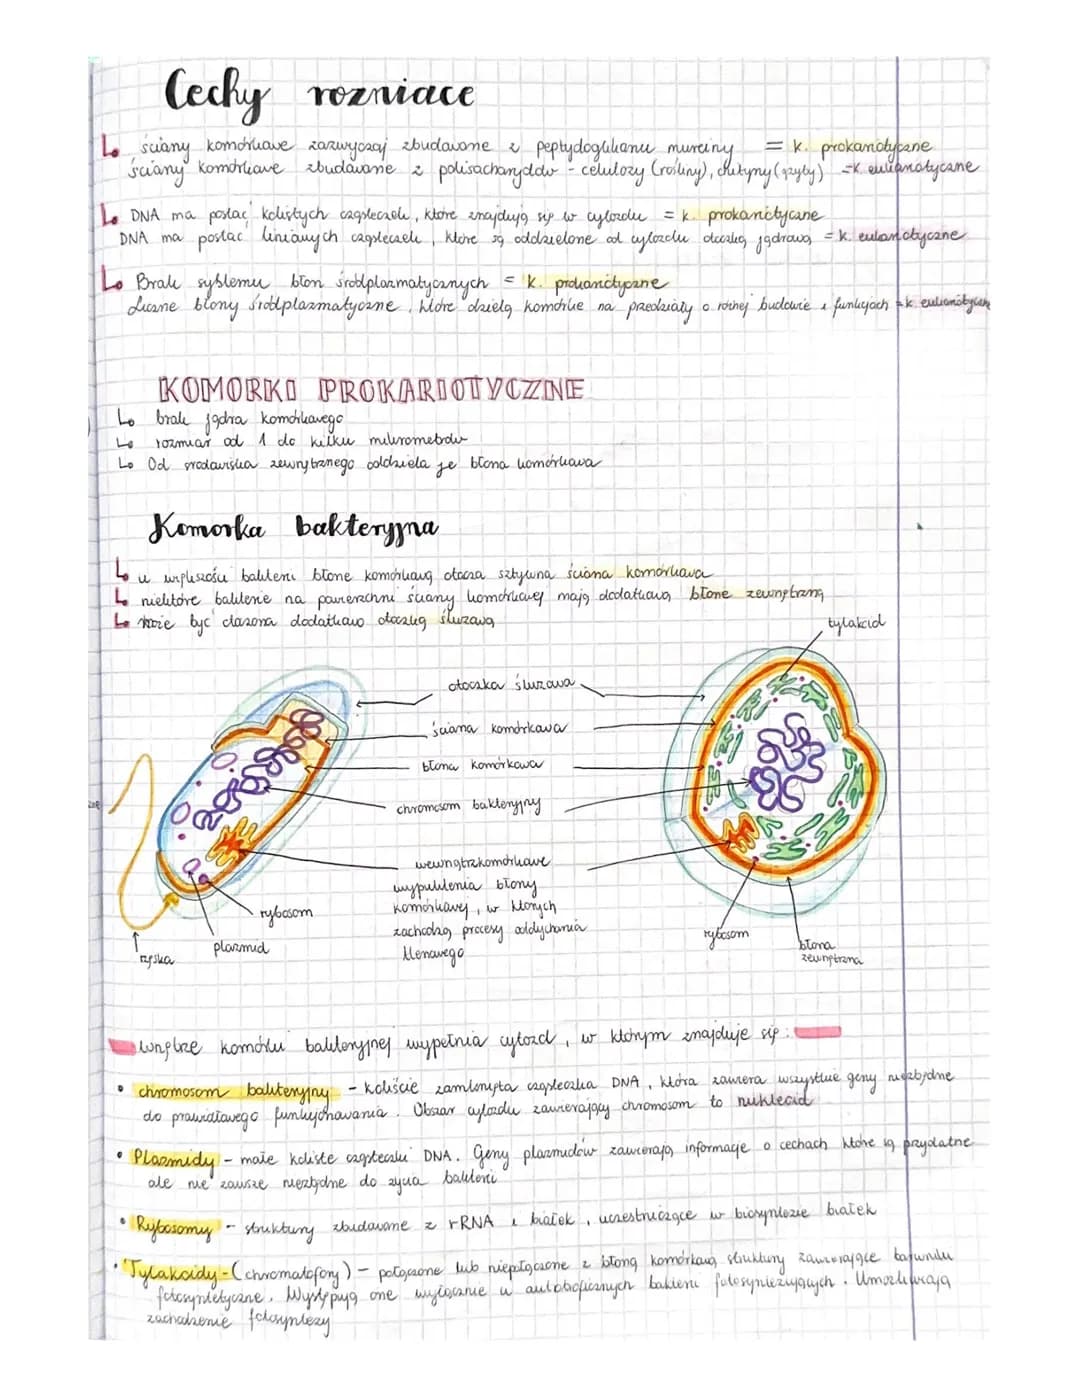 Cechy rozniace
ściany komórkowe zazwyczaj zbudowane z peptydoglikanu mureiny = k. prokariotyczne
ściany komórkowe zbudowane z polisacharydów - celulozy (rośliny), chityny (grzyby) = k. eukariotyczne
DNA ma postać kolistych cząsteczek, które znajdują się w cytozolu = k. prokariotyczne
DNA ma postać liniowych cząsteczek, które są oddzielone od cytozolu otoczką jądrową = k. eukariotyczne
Brak systemu błon śródplazmatycznych = k. prokariotyczne
Liczne błony śródplazmatyczne, które dzielą komórkę na przedziały o różnej budowie i funkcjach = k. eukariotyczne
KOMORKI PROKARIOTYCZNE
brak jądra komórkowego
rozmiar od 1 do kilku mikrometrów
Od środowiska zewnętrznego oddziela je błona komórkowa
Komorka bakteryjna
u większości bakterii błonę komórkową otacza sztywna ściana komórkowa
niektóre bakterie na powierzchni ściany komórkowej mają dodatkową błonę zewnętrzną
może być otoczona dodatkowo otoczką śluzową
tylakoid
otoczka śluzowa
ściana komórkowa
błona komórkowa
chromosom bakteryjny
wewnątrzkomórkowe
wypuklenia błony
komórkowej, w których
zachodzą procesy oddychania
tlenowego
rybosom
plazmid
rzęska
rybosom
błona
zewnętrzna
wnętrze komórki bakteryjnej wypełnia cytozol, w którym znajduje się:
• chromosom bakteryjny - koliście zamknięta cząsteczka DNA, która zawiera wszystkie geny niezbędne
do prawidłowego funkcjonowania. Obszar cytozolu zawierający chromosom to nukleoid
• Plazmidy - małe koliste cząsteczki DNA. Geny plazmidów zawierają informacje o cechach które są przydatne
ale nie zawsze niezbędne do życia bakterii
• Rybosomy - struktury zbudowane z rRNA i białek, uczestniczące w biosyntezie białek
• Tylakoidy - (chromatofory) - połączone lub niepołączone z błoną komórkową struktury zawierające barwniki
fotosyntetyczne. Występują one wyłącznie u autotroficznych bakterii fotosyntezujących. Umożliwiają
zachodzenie fotosyntezy